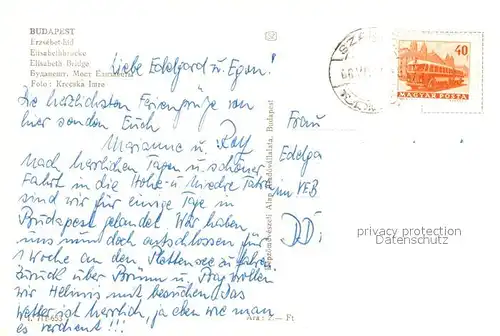 BUDAPEST
Erzsébet-híd
Elisabethbrücke
Elisabeth Bridge
Будапешт. Мост Елизаветы
Foto: Krecska Imre
Liebe Edelgard u. Egon!
Die herzlichsten Feriengrüße von
hier senden Euch
Marianne u. Rolf
Nach herrlichen Tagen u. schöner
Fahrt in die Hohe u. Niedre Tatra
sind wir für einige Tage in
Budapest gelandet. Wir haben
uns nun doch entschlossen für
1 Woche an den Plattensee zu fahren.
Zurück über Brünn u. Prag wollen
wir Helmis mit besuchen. Das
Wetter ist herrlich, ja eben wie man
es verdient!!!
Képzőművészeti Alap Kiadóvállalata, Budapest
Ára: 2.— Ft
40
MAGYAR POSTA
Frau
Edelga
im VEB
DD
privacy protection
Datenschutz